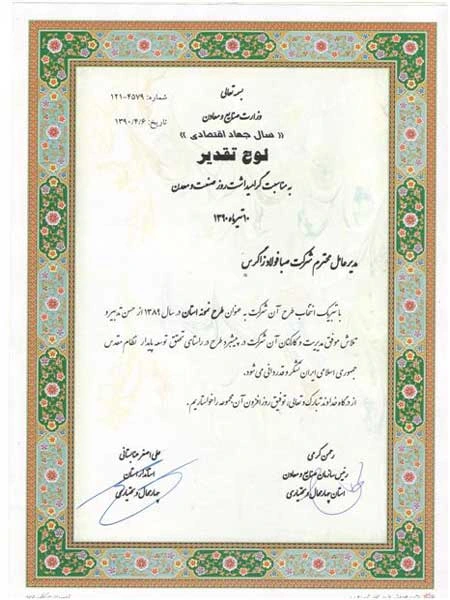 بسمه تعالی
شماره: ۱۲۱-۴۵۷۹
وزارت صنایع و معادن
تاریخ: ۱۳۹۰/۴/۶
« سال جهاد اقتصادی »
لوح تقدیر
به مناسبت گرامیداشت روز صنعت و معدن
۱۰ تیرماه ۱۳۹۰
مدیرعامل محترم شرکت صبا فولاد زاگرس
با تبریک انتخاب طرح آن شرکت به عنوان طرح نمونه استان در سال ۱۳۸۹ از حسن تدبیر و
تلاش موفق مدیریت و کارکنان آن شرکت در پیشبرد طرح در راستای تحقق توسعه پایدار نظام مقدس
جمهوری اسلامی ایران تشکر و قدردانی می شود.
از درگاه خداوند تبارک و تعالی، توفیق روزافزون آن مجموعه را خواستاریم.
رحمن کرمی
رئیس سازمان صنایع و معادن
استان چهارمحال و بختیاری
علی اصغر عنابستانی
استاندار استان
چهارمحال و بختیاری